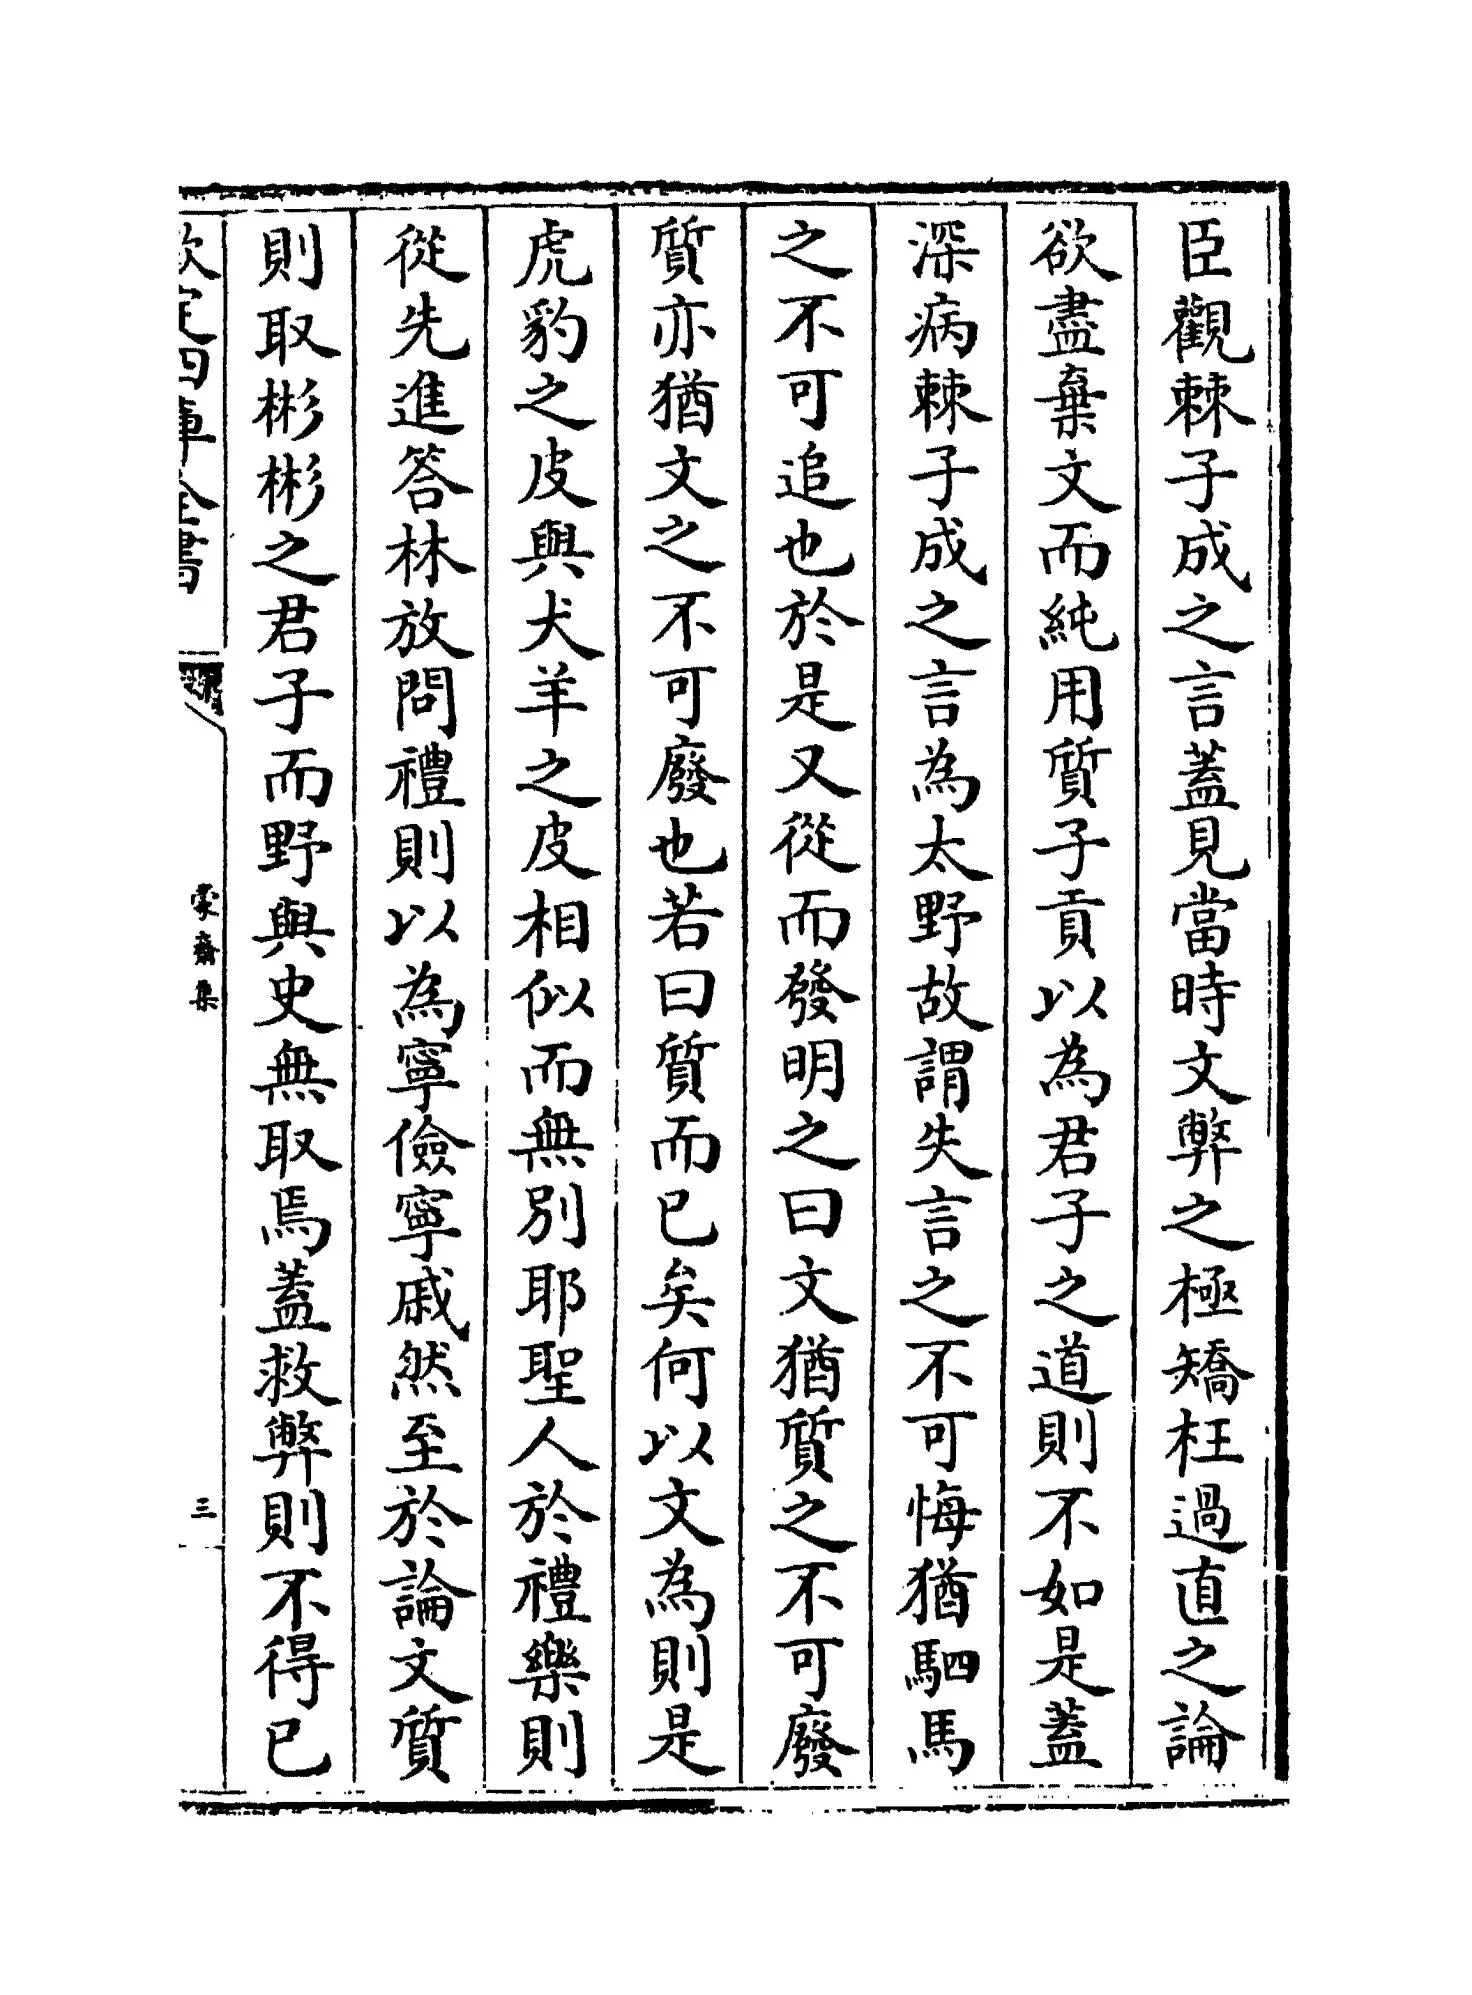 臣觀棘子成之言蓋見當時文弊之極矯枉過直之論
欲盡棄文而純用質子貢以為君子之道則不如是蓋
深病棘子成之言為太野故謂失言之不可悔猶駟馬
之不可追也於是又從而發明之曰文猶質之不可廢
質亦猶文之不可廢也若曰質而已矣何以文為則是
虎豹之皮與犬羊之皮相似而無別耶聖人於禮樂則
從先進答林放問禮則以為寧儉寧戚然至於論文質
則取彬彬之君子而野與史無取焉蓋救弊則不得已
欽定四庫全書
蒙齋集
三